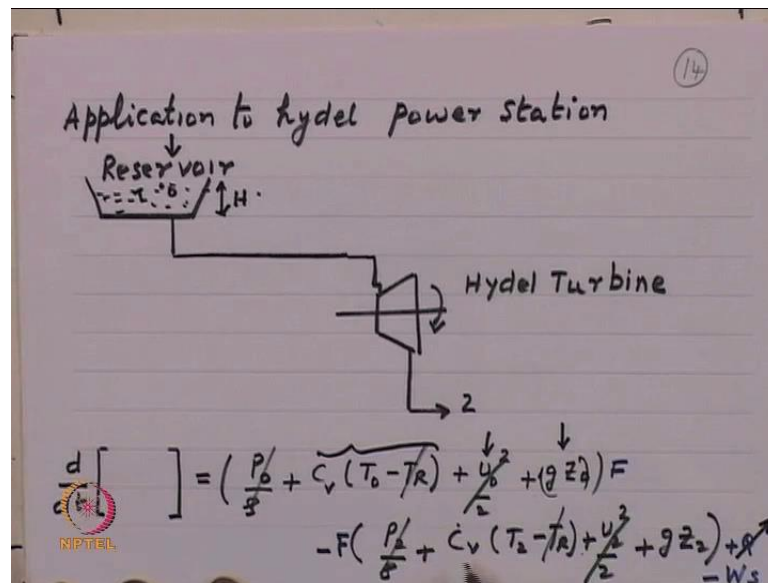 14
Application to hydel power station
↓
Reservoir
H
Hydel Turbine
2
d/dt [ ] = ( P₀/ρ + Cᵥ (T₀ - T_R) + u₀²/2 + (g Z₀) ) F
- F ( P₂/ρ + Cᵥ (T₂ - T_R) + u₂²/2 + g Z₂ ) + q
- Ws
NPTEL